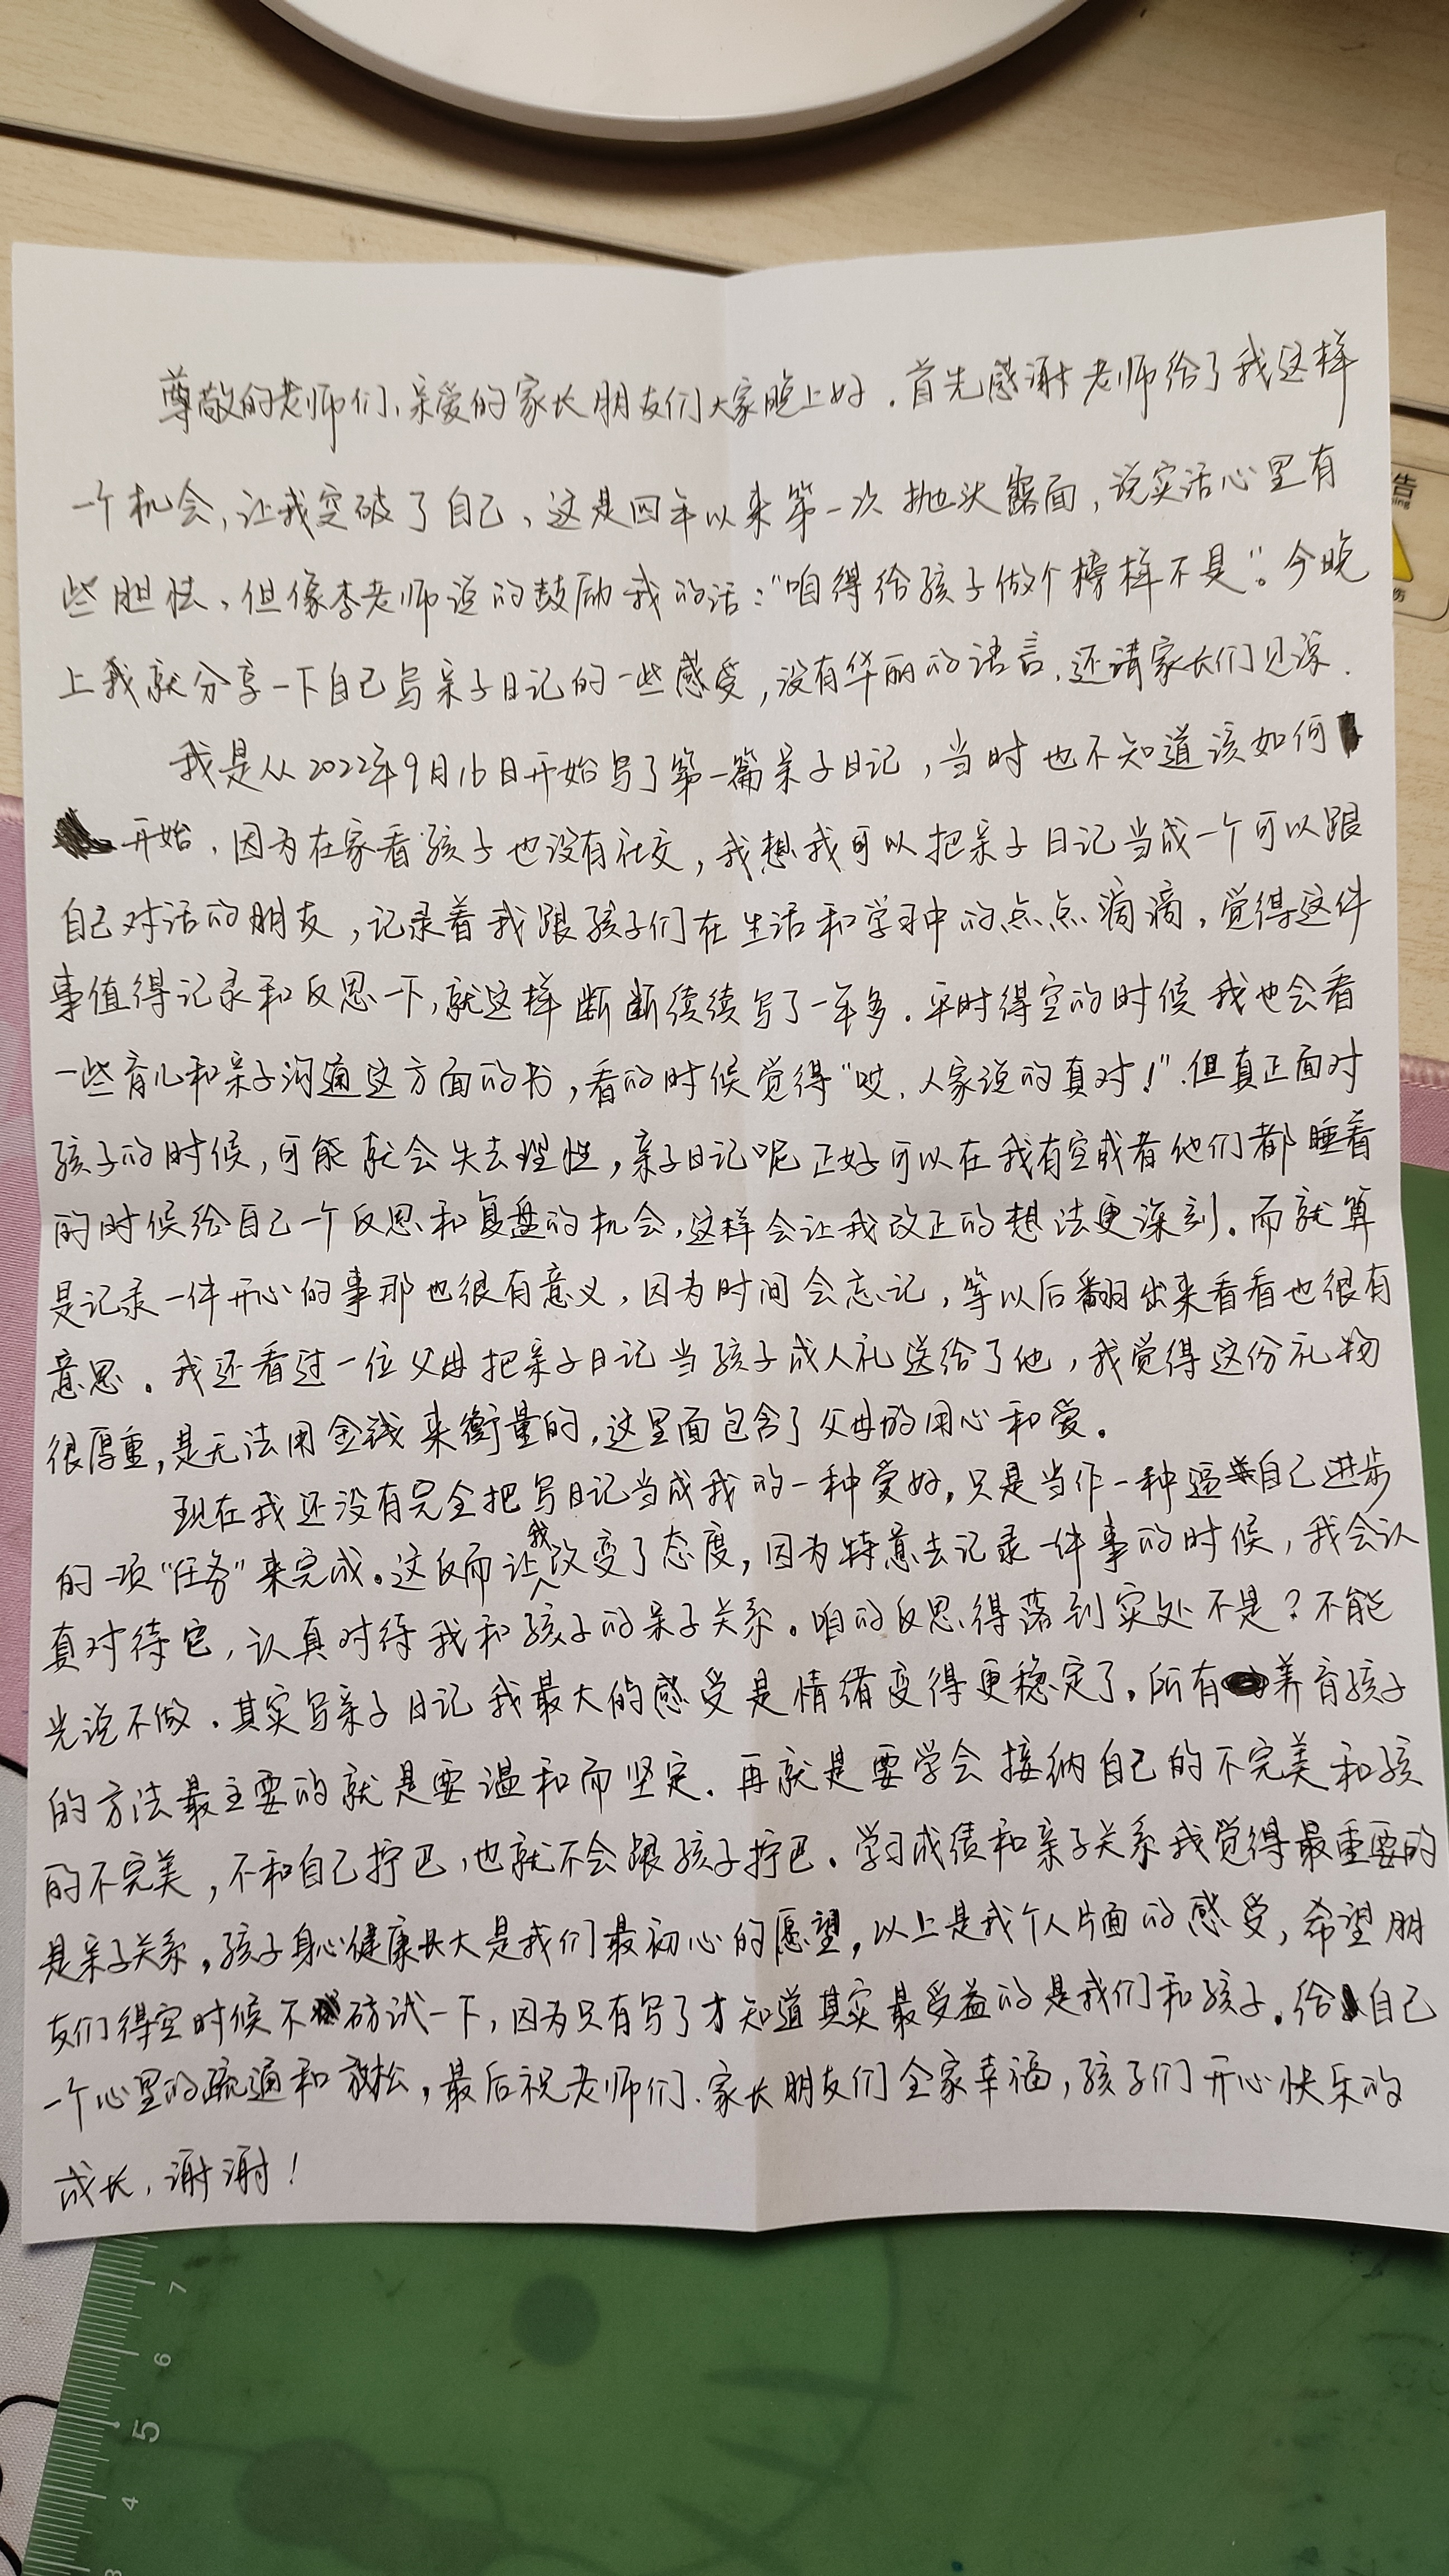 尊敬的老师们、亲爱的家长朋友们大家晚上好.首先感谢老师给了我这样
一个机会,让我突破了自己、这是四年以来第一次抛头露面,说实话心里有
些胆怯、但像李老师说的鼓励我的话:"咱得给孩子做个榜样不是"。今晚
上我就分享一下自己写亲子日记的一些感受,没有华丽的语言.还请家长们见谅.
我是从2022年9月16日开始写了第一篇亲子日记,当时也不知道该如何
开始.因为在家看孩子也没有社交,我想我可以把亲子日记当成一个可以跟
自己对话的朋友,记录着我跟孩子们在生活和学习中的点点滴滴,觉得这件
事值得记录和反思一下,就这样断断续续写了一年多.平时得空的时候我也会看
一些育儿和亲子沟通这方面的书,看的时候觉得"哎.人家说的真对!".但真正面对
孩子的时候,可能就会失去理性,亲子日记呢正好可以在我有空或者他们都睡着
的时候给自己一个反思和复盘的机会,这样会让我改正的想法更深刻.而就算
是记录一件开心的事那也很有意义,因为时间会忘记,等以后翻出来看看也很有
意思.我还看过一位父母把亲子日记当孩子成人礼送给了他,我觉得这份礼物
很厚重,是无法用金钱来衡量的,这里面包含了父母的用心和爱。
现在我还没有完全把写日记当成我的一种爱好,只是当作一种逼自己进步
的一项"任务"来完成。这反而让我改变了态度,因为特意去记录一件事的时候,我会认
真对待它,认真对待我和孩子的亲子关系。咱的反思得落到实处不是?不能
光说不做.其实写亲子日记我最大的感受是情绪变得更稳定了.所有养育孩子
的方法最主要的就是要温和而坚定.再就是要学会接纳自己的不完美和孩
的不完美,不和自己拧巴,也就不会跟孩子拧巴.学习成绩和亲子关系我觉得最重要的
是亲子关系,孩子身心健康长大是我们最初心的愿望,以上是我个人片面的感受,希望朋
友们得空时候不妨试一下,因为只有写了才知道其实最受益的是我们和孩子.给自己
一个心里的疏通和放松,最后祝老师们、家长朋友们全家幸福,孩子们开心快乐的
成长.谢谢!
告
7
6
5
4
3